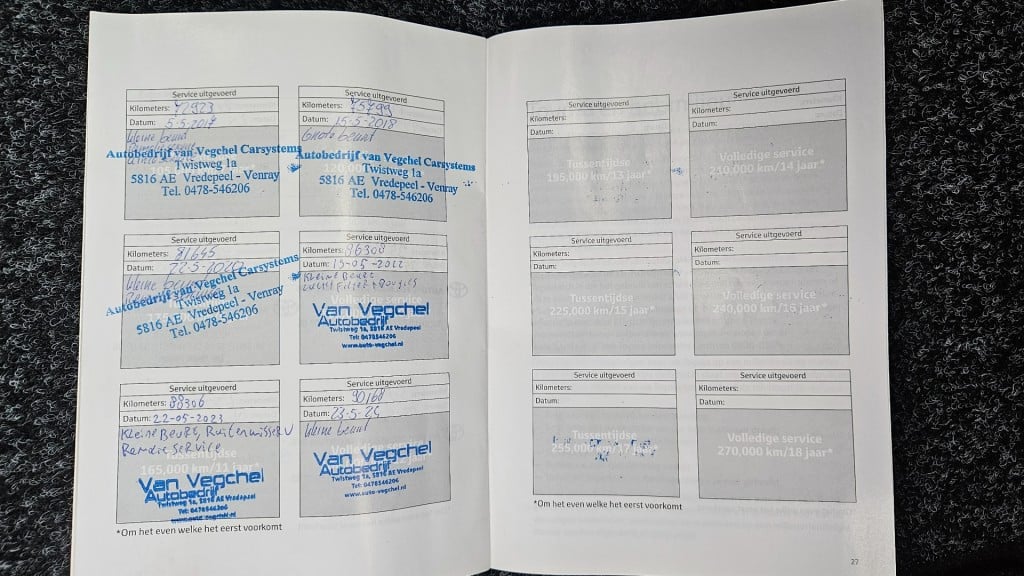 Service uitgevoerd
Kilometers: 72923
Datum: 5-5-2017
Kleine beurt
Autobedrijf van Vegchel Carsystems
Twistweg 1a
5816 AE Vredepeel - Venray
Tel. 0478-546206
Service uitgevoerd
Kilometers: 75799
Datum: 15-5-2018
Grote beurt
Autobedrijf van Vegchel Carsystems
Twistweg 1a
5816 AE Vredepeel - Venray
Tel. 0478-546206
Service uitgevoerd
Kilometers: 81645
Datum: 22-5-
Kleine beurt
Autobedrijf van Vegchel Carsystems
Twistweg 1a
5816 AE Vredepeel - Venray
Tel. 0478-546206
Service uitgevoerd
Kilometers: 86308
Datum: 19-05-2022
Kleine Beurt
Volledige service
Van Vegchel
Autobedrijf
Twistweg 1a, 5816 AE Vredepeel
Tel: 0478546206
www.auto-vegchel.nl
Service uitgevoerd
Kilometers: 88306
Datum: 22-05-2023
Kleine Beurt, Ruitenwisser V
Remdie service
165,000 km/11 jaar*
Van Vegchel
Autobedrijf
Twistweg 1a, 5816 AE Vredepeel
Tel: 0478546206
www.auto-vegchel.nl
Service uitgevoerd
Kilometers: 90168
Datum: 23-5-24
Kleine beurt
Van Vegchel
Autobedrijf
Twistweg 1a, 5816 AE Vredepeel
Tel: 0478546206
www.auto-vegchel.nl
*Om het even welke het eerst voorkomt
Service uitgevoerd
Kilometers:
Datum:
Tussentijdse
195,000 km/13 jaar*
Service uitgevoerd
Kilometers:
Datum:
Volledige service
210,000 km/14 jaar*
Service uitgevoerd
Kilometers:
Datum:
Tussentijdse
225,000 km/15 jaar*
Service uitgevoerd
Kilometers:
Datum:
Volledige service
240,000 km/16 jaar*
Service uitgevoerd
Kilometers:
Datum:
Tussentijdse
255,000 km/17 jaar*
Service uitgevoerd
Kilometers:
Datum:
Volledige service
270,000 km/18 jaar*
*Om het even welke het eerst voorkomt
27